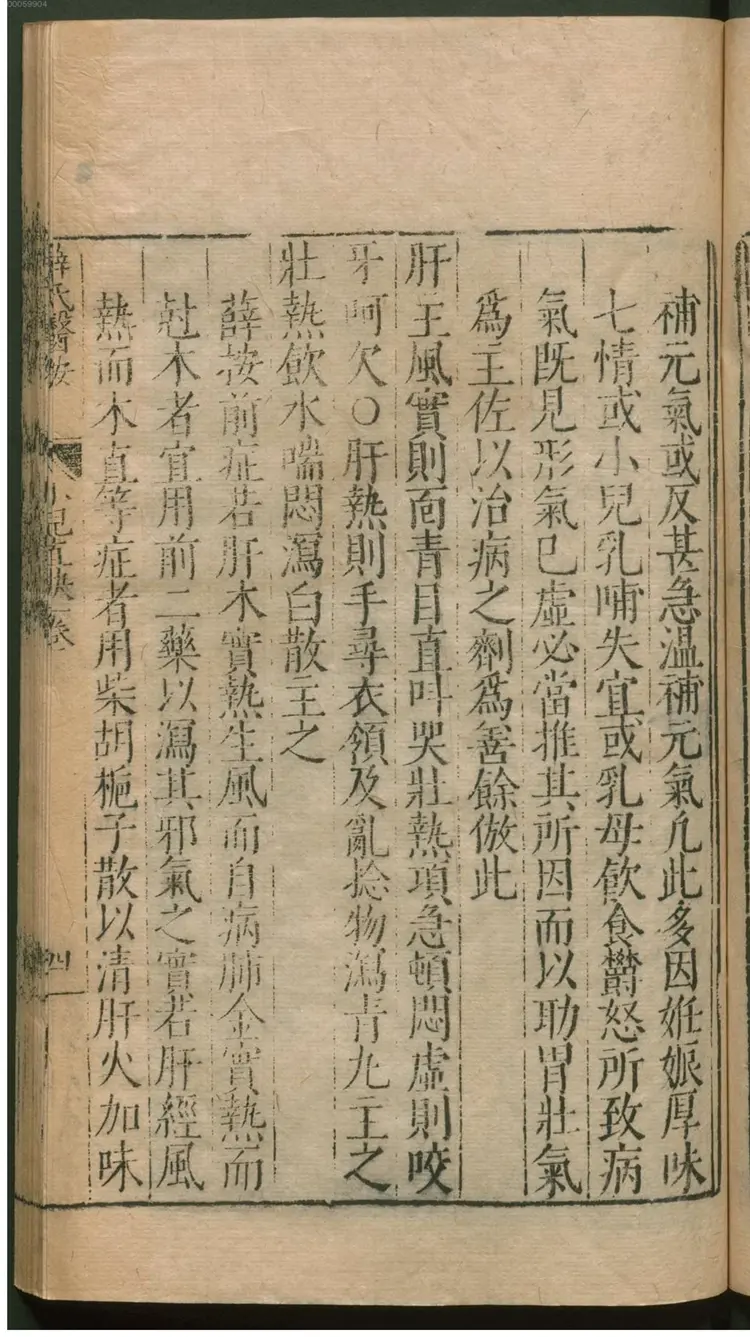 補元氣或反甚急溫補元氣凢此多因姙娠厚味
七情或小兒乳哺失宜或乳母飲食鬱怒所致病
氣旣見形氣已虛必當推其所因而以助胃壯氣
爲主佐以治病之劑爲善餘倣此
肝主風實則面青目直呌哭壯熱項急頓悶虛則咬
牙呵欠〇肝熱則手尋衣領及亂捻物瀉青丸主之
壯熱飲水喘悶瀉白散主之
薛按前症若肝木實熱生風而自病肺金實熱而
尅木者宜用前二藥以瀉其邪氣之實若肝經風
熱而木直等症者用柴胡梔子散以清肝火加味
薛氏醫按 小兒直訣一卷 四
00059904